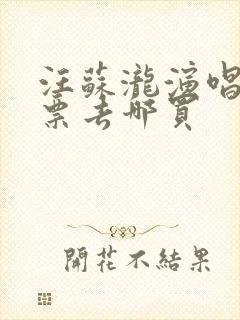 汪蘇瀧演唱
票去哪買
開花不結果